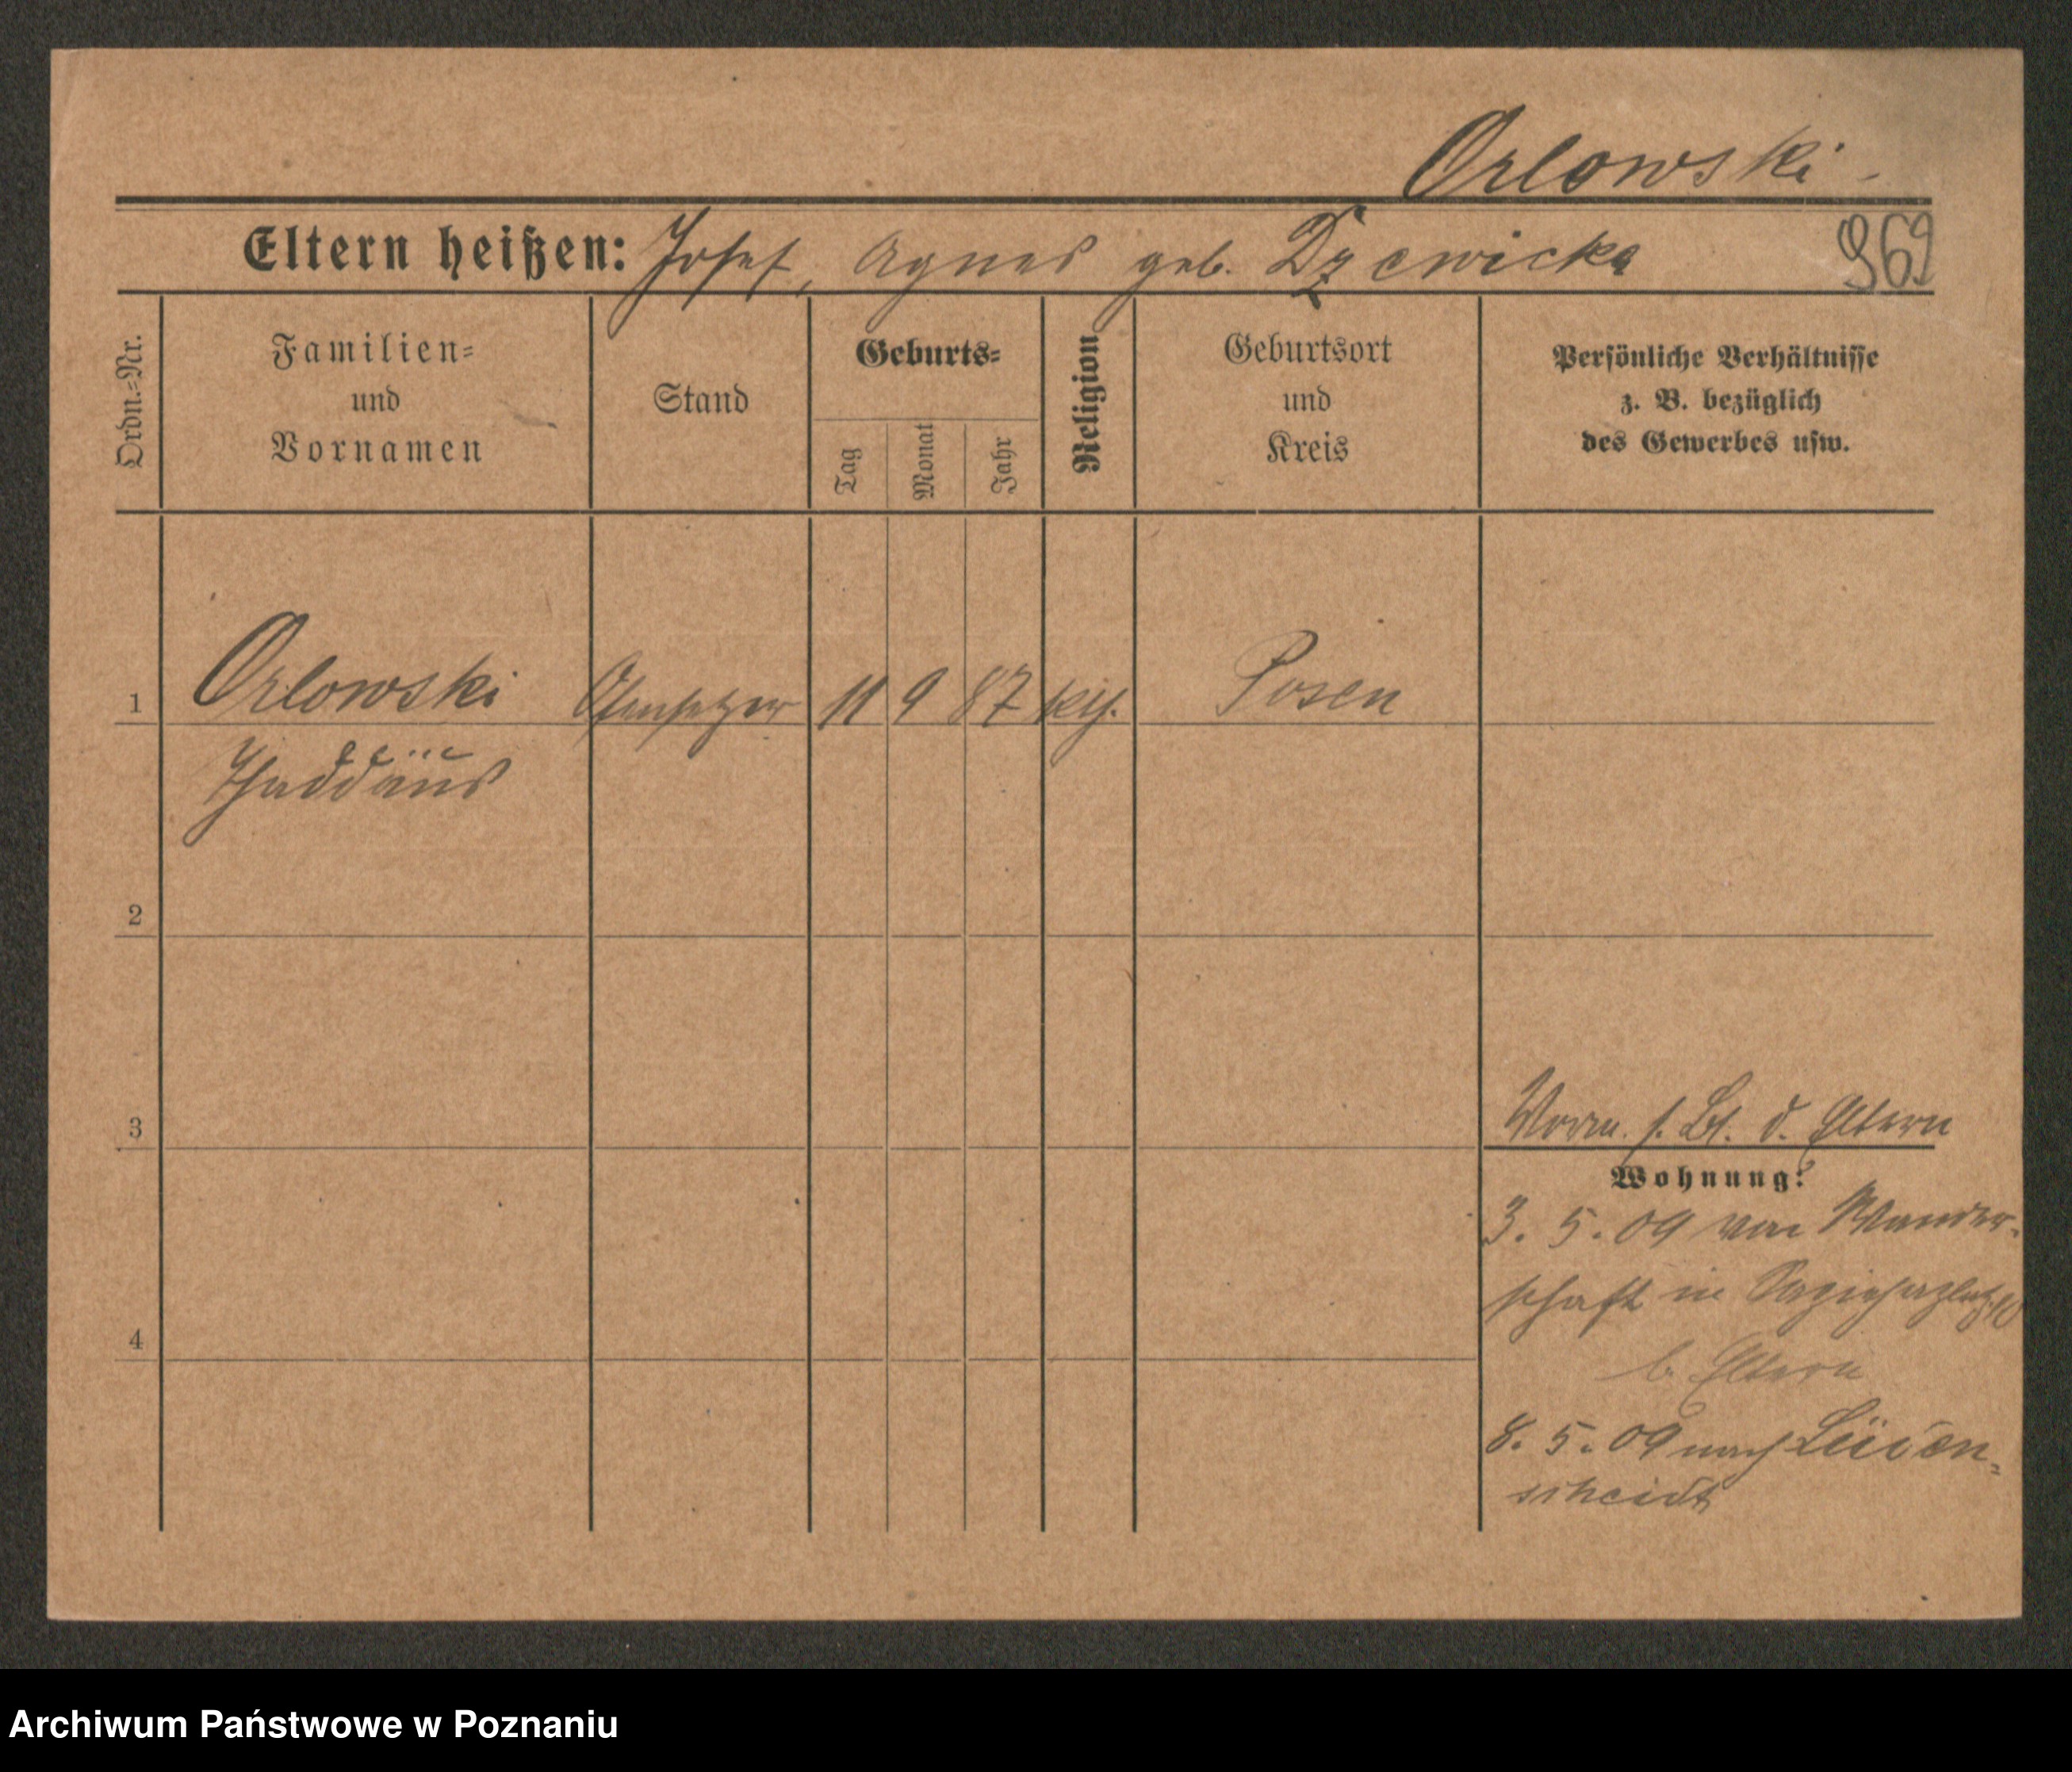 Orlowski
Eltern heißen: Josef, Agnes geb.
969
Ordn.-Nr.
Familien-
und
Vornamen
Stand
Geburts-
Tag
Monat
Jahr
Religion
Geburtsort
und
Kreis
Persönliche Verhältnisse
z. B. bezüglich
des Gewerbes usw.
1 Orlowski Ofensetzer 11 9 87 kth. Posen
Thaddäus
2
3
Vorm. s. Bl. d. Eltern
Wohnung:
3. 5. 09 von Wander-
schaft in
4
b. Eltern
8. 5. 09 nach Lüden-
scheidt
Archiwum Państwowe w Poznaniu